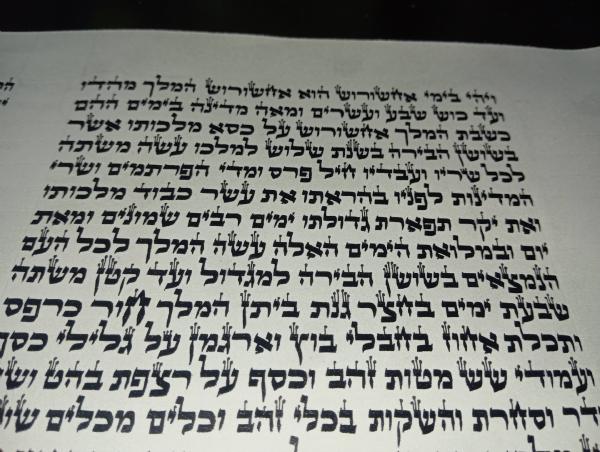 ויהי בימי אחשורוש הוא אחשורוש המלך מהדו
ועד כוש שבע ועשרים ומאה מדינה בימים ההם
כשבת המלך אחשורוש על כסא מלכותו אשר
בשושן הבירה בשנת שלוש למלכו עשה משתה
לכל שריו ועבדיו חיל פרס ומדי הפרתמים ושרי
המדינות לפניו בהראתו את עשר כבוד מלכותו
ואת יקר תפארת גדולתו ימים רבים שמונים ומאת
יום ובמלואת הימים האלה עשה המלך לכל העם
הנמצאים בשושן הבירה למגדול ועד קטן משתה
שבעת ימים בחצר גנת ביתן המלך חור כרפס
ותכלת אחוז בחבלי בוץ וארגמן על גלילי כסף
ועמודי שש מטות זהב וכסף על רצפת בהט ושש
ודר וסחרת והשקות בכלי זהב וכלים מכלים שונים